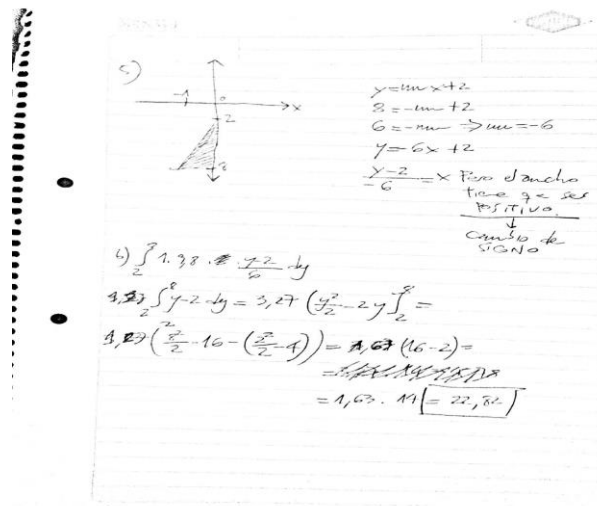 5)
-1 0
x
2
8
y=mx+2
8=-m+2
6=-m ⇒ m=-6
y=-6x+2
y-2/-6 = x Pero el ancho
tiene q ser
POSITIVO
↓
cambio de
SIGNO
6) ∫₂⁸ 1. 9,8 . y-2/6 dy
∫₂⁸ y-2 dy = (y²/2 - 2y)₂⁸ =
(8²/2 -16 - (2²/2 -4)) = (16-2)=
= 1,63 . 14 = 22,82